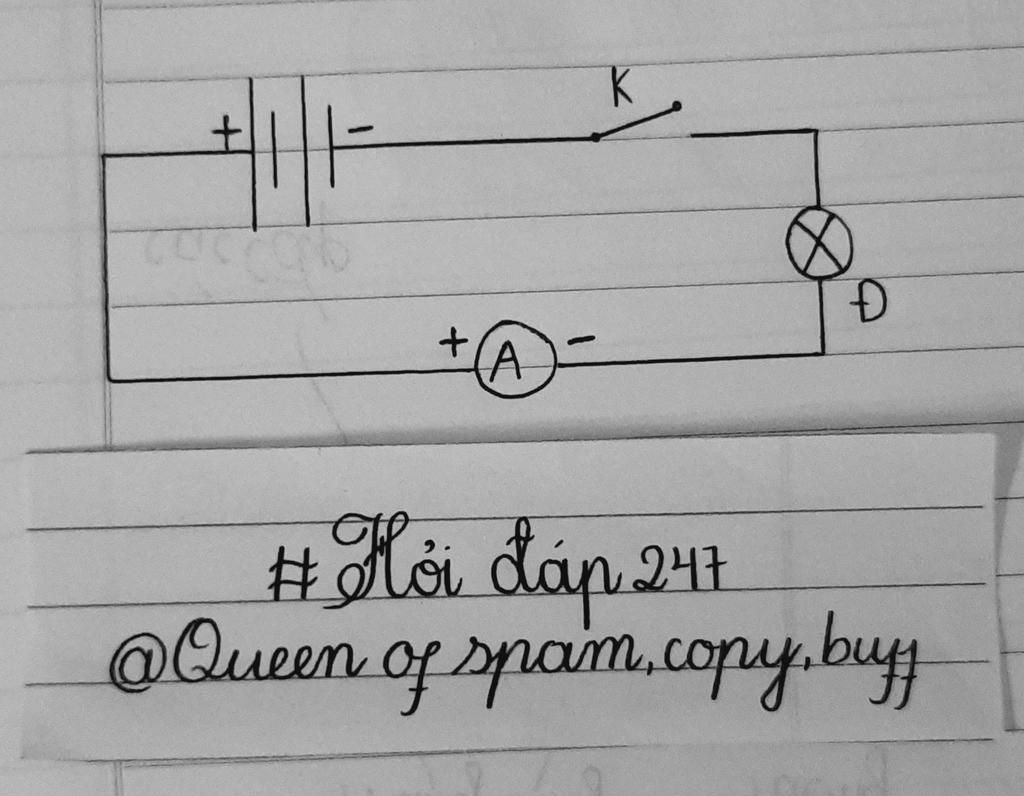 K
+ -
Đ
+ A -
# Hỏi đáp 247
@Queen of spam, copy, buff